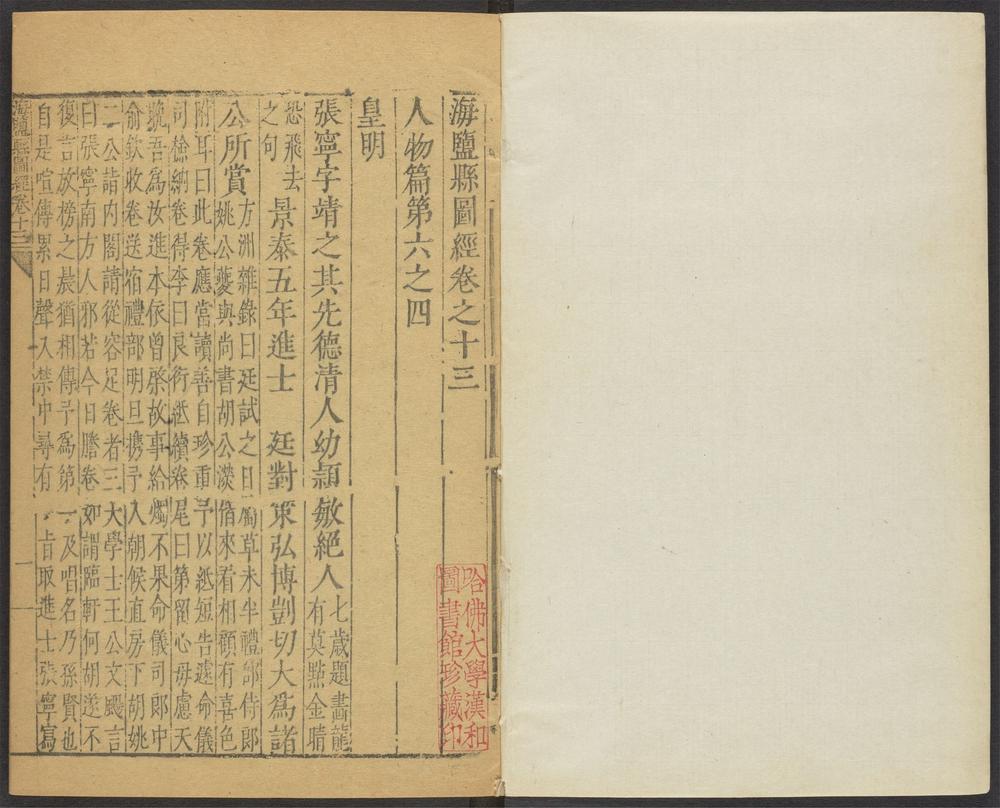 海鹽縣圖經卷之十三
人物篇第六之四
皇明
張寧字靖之其先德清人幼頴敏絕人
七歲題畫龍
有莫㸃金睛
恐飛去
之句
景泰五年進士 廷對策弘博剴切大為諸
公所賞
方洲雜錄曰廷試之日屬草未半禮部侍郎
姚公夔與尚書胡公濙偕來看相顧有喜色
附耳曰此卷應當讀善自珍重予以紙短告遂命儀
司檢納卷得李曰良衍紙續卷尾曰第留心毋慮天
晚吾爲汝進本依曾棨故事給燭不果命儀司郎中
俞欽收卷送宿禮部明旦携予入朝候直房下胡姚
二公詣内閣請從容足卷者三大學士王公文颺言
曰張寧南方人邪若今日謄卷如謂臨軒何胡遂不
復言放榜之晨猶相傳予爲第一及唱名乃孫賢也
自是喧傳累日聲入禁中尋有 旨取進士張寧寫
海鹽縣圖經卷十三
一
哈佛大學漢和
圖書館珍藏印